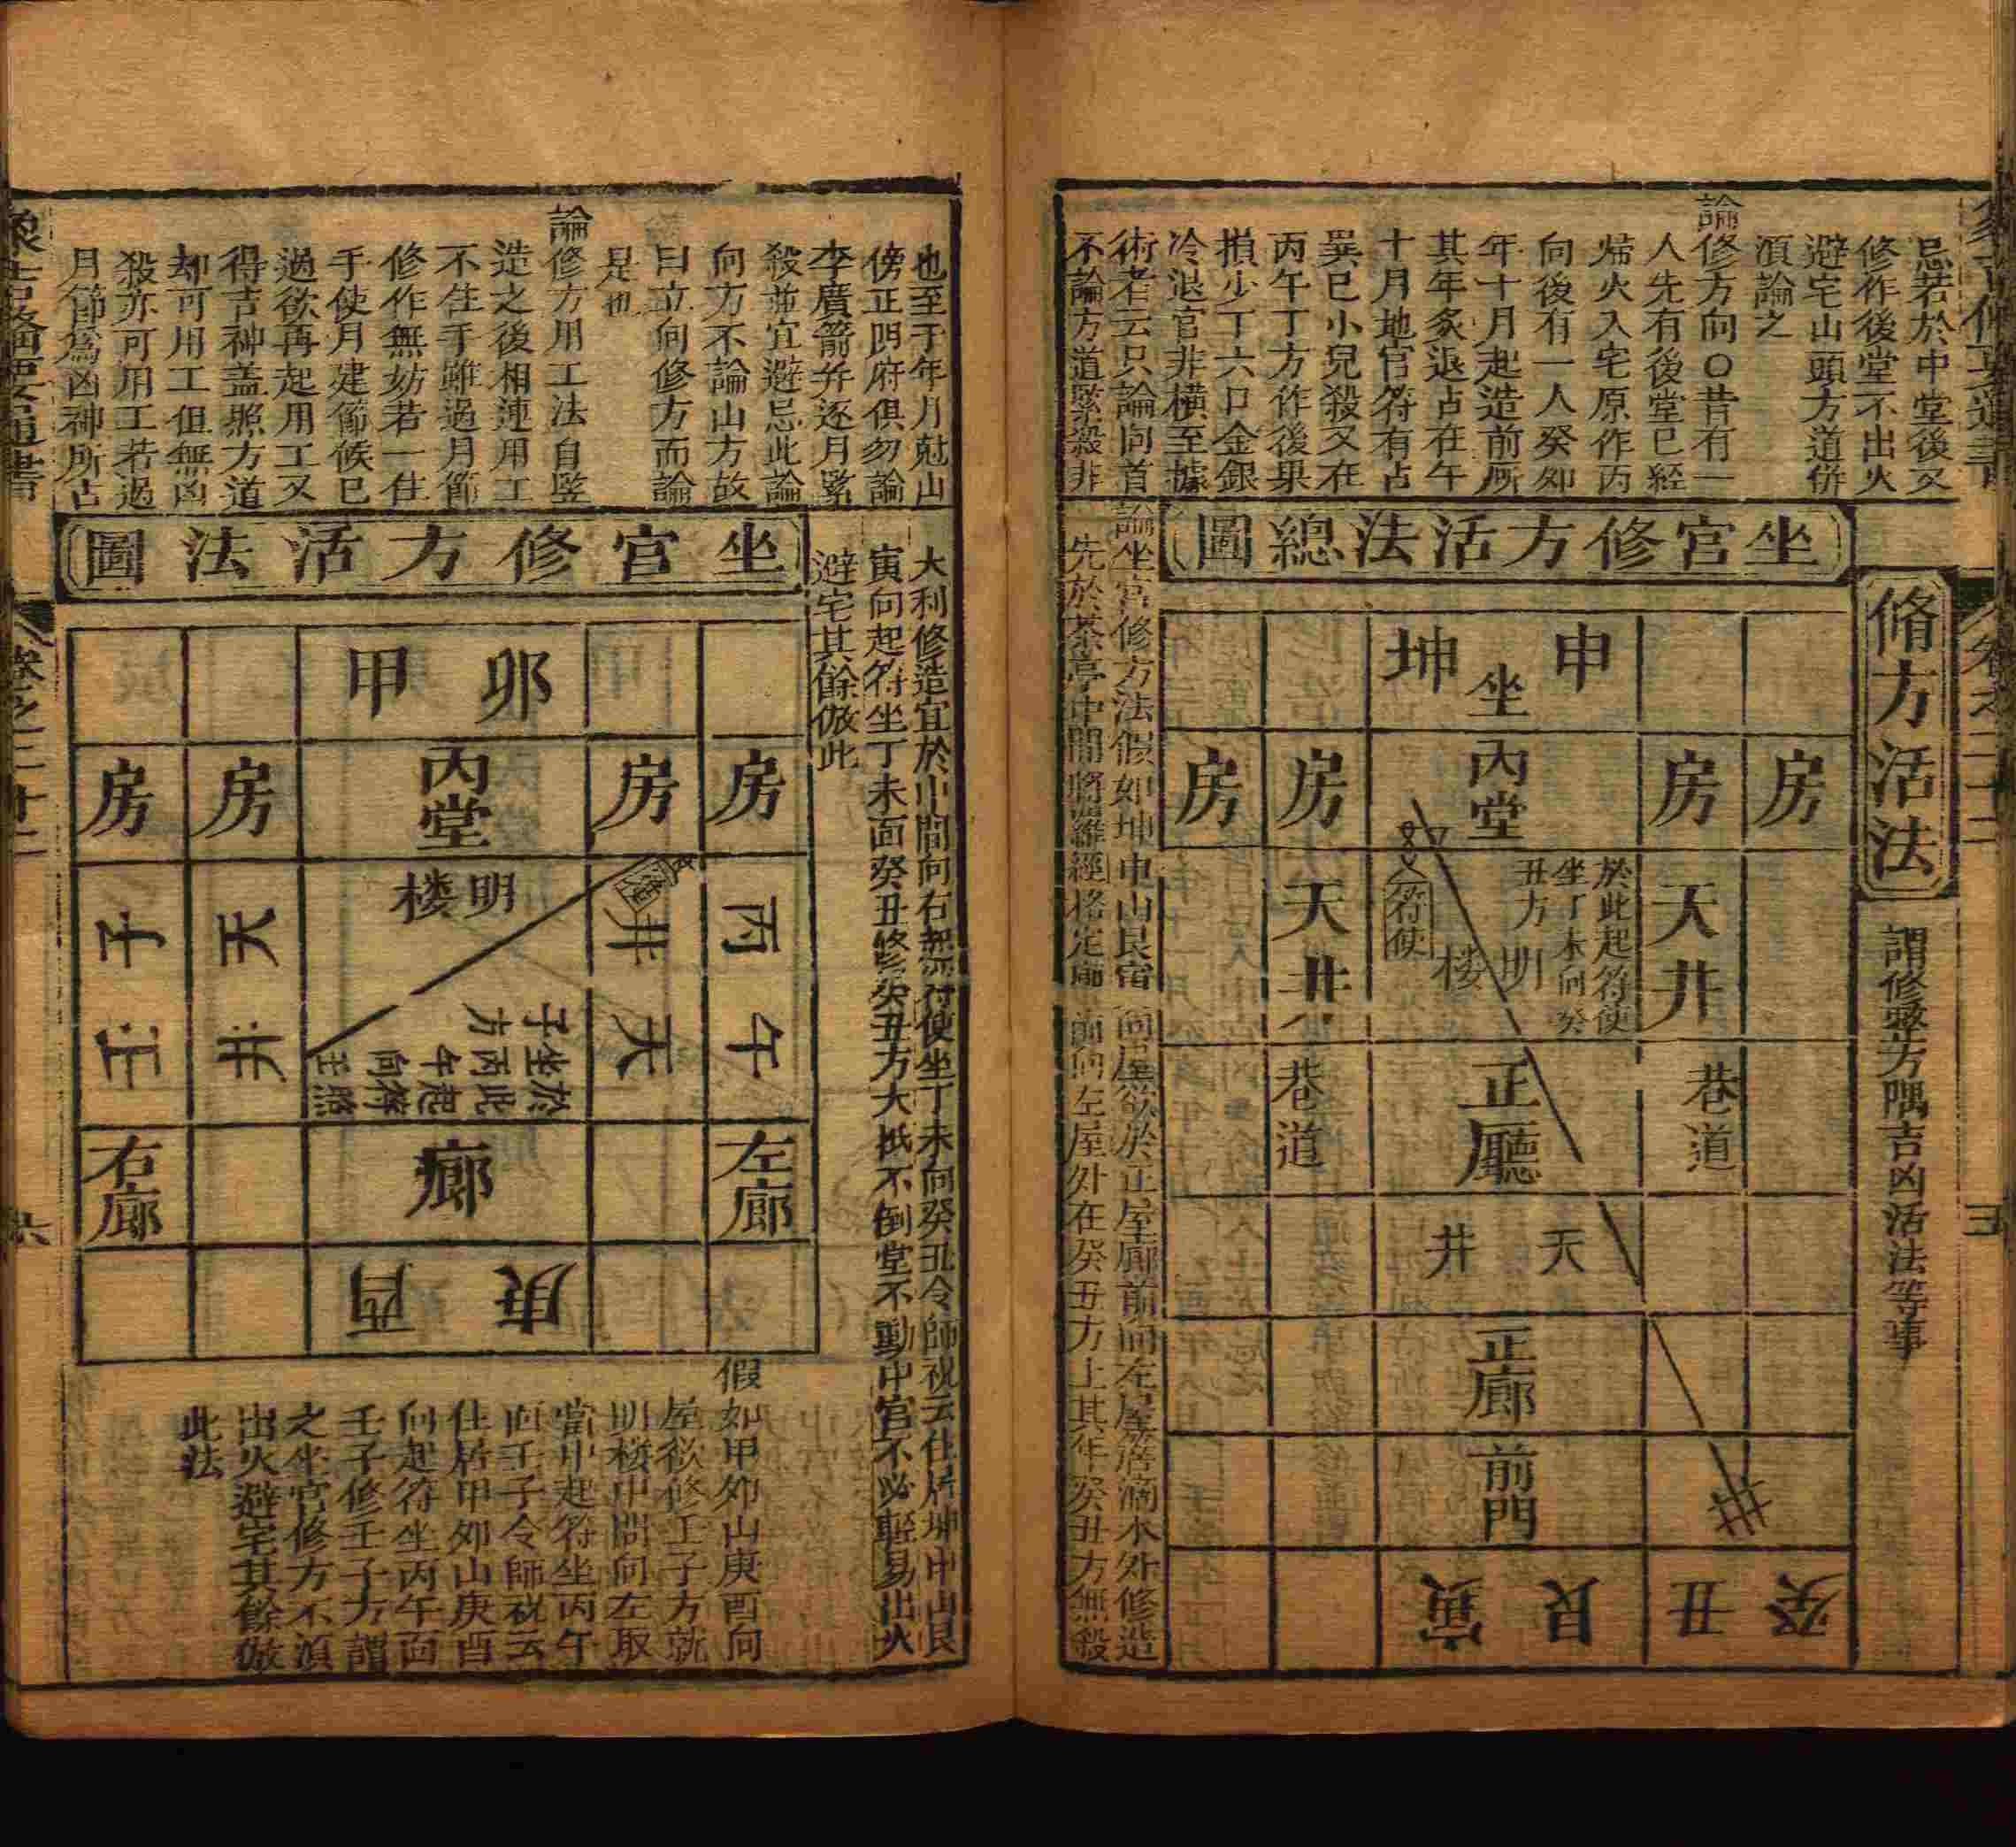 忌若於中堂後又
修作後堂不出火
避宅山頭方道併
湏論之
論修方向○昔有一
人先有後堂已經
歸火入宅原作丙
向後有一人癸卯
年十月起造前所
其年炙退占在午
十月地官符有占
巽巳小兒殺又在
丙午丁方作後果
損少丁六口金銀
冷退官非橫至據
術者云只論向首
不論方道緊殺非
脩方活法
謂修整方隅吉凶活法等事
坐宫修方活法總圖
申 坤
坐
房 房 内堂 房 房
天井
於此起符使
坐丁未向癸
丑方
明楼
符使
天井
巷道 正廳 巷道
天井
正廊
前門
井
癸 丑 艮 寅
論坐宫修方法假如坤申山艮寅向屋欲於正屋廊前向左居廉簷滴水外修造
先於茶亭中間將羅經格定廊前向左屋外在癸丑方上其年癸丑方無殺
也至于年月尅山
傍正門府俱勿論
李廣箭并逐月緊
殺並宜避忌此論
向方不論山方故
曰立向修方而論
是也
論修方用工法自竪
造之後相連用工
不住手雖過月節
修作無妨若一住
手使月建節候已
過欲再起用工又
得吉神盖照方道
却可用工但無凶
殺亦可用工若過
月節為凶神所占
大利修造宜於中間向右起符使坐丁未向癸丑令師祝云住居坤申山艮
寅向起符坐丁未面癸丑修癸丑方大抵不倒堂不動中宫不必輕易出火
避宅其餘倣此
坐宫修方活法圖
卯 甲
房 房 内堂 房 房
丙 午
天井
明楼
於此起符
坐丙午向壬
子方
天井
子 壬
左廊 廊 右廊
庚 酉
假如甲卯山庚酉向
屋欲修壬子方就
明楼中間向左取
當中起符坐丙午
向壬子令師祝云
住居甲卯山庚酉
向起符坐丙午面
壬子修壬子方謂
之坐宫修方不湏
出火避宅其餘倣
此法